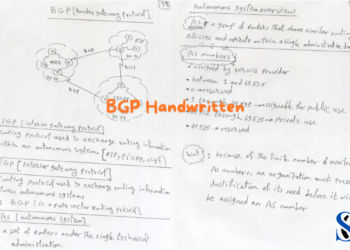 BGP [border gateway protocol]
BGP
BGP
IGP [interior gateway protocol]
routing protocol used to exchange routing information
within an autonomous systems
EGP [Exterior gateway protocol]
routing protocol used to exchange routing information
between autonomous systems
BGP is a path vector routing protocol
AS [autonomous system]
a set of routers under the single technical
administration
Autonomous system overview
AS → a group of routers that share similar routing
policies and operate within a single administrative domain
AS numbers
→ assigned by service provider
→ between 1 and 65535
→ 0 → reserved
assignable for public use
through 65535 → private use
65535 → reserved
because of the finite number of available
AS numbers, an organization must present
justification of its need before it will
be assigned an AS number
BGP Handwritten
S